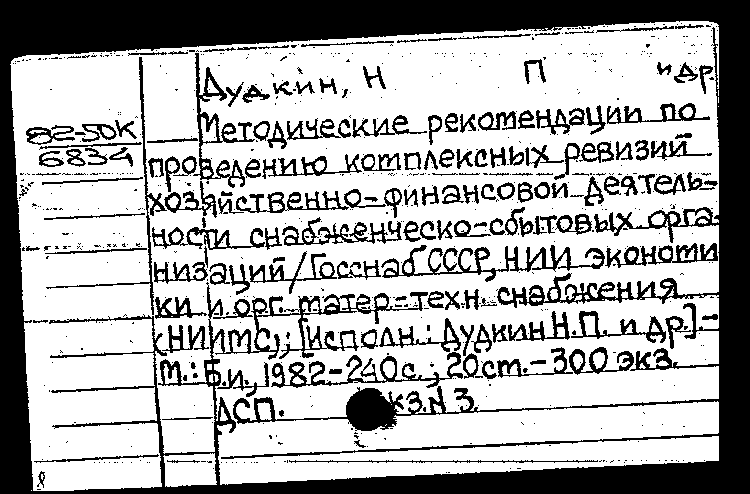 Дудкин, Н П и др
82-50К
6834
Методические рекомендации по
проведению комплексных ревизий
хозяйственно-финансовой деятель-
ности снабженческо-сбытовых орга-
низаций/Госснаб СССР, НИИ экономи
ки и орг. матер-техн. снабжения
(НИИМС); [Исполн.: Дудкин Н.П. и др].-
М.: Б.и., 1982-240с.; 20см.-300 экз.
ДСП. кз. N 3.
8